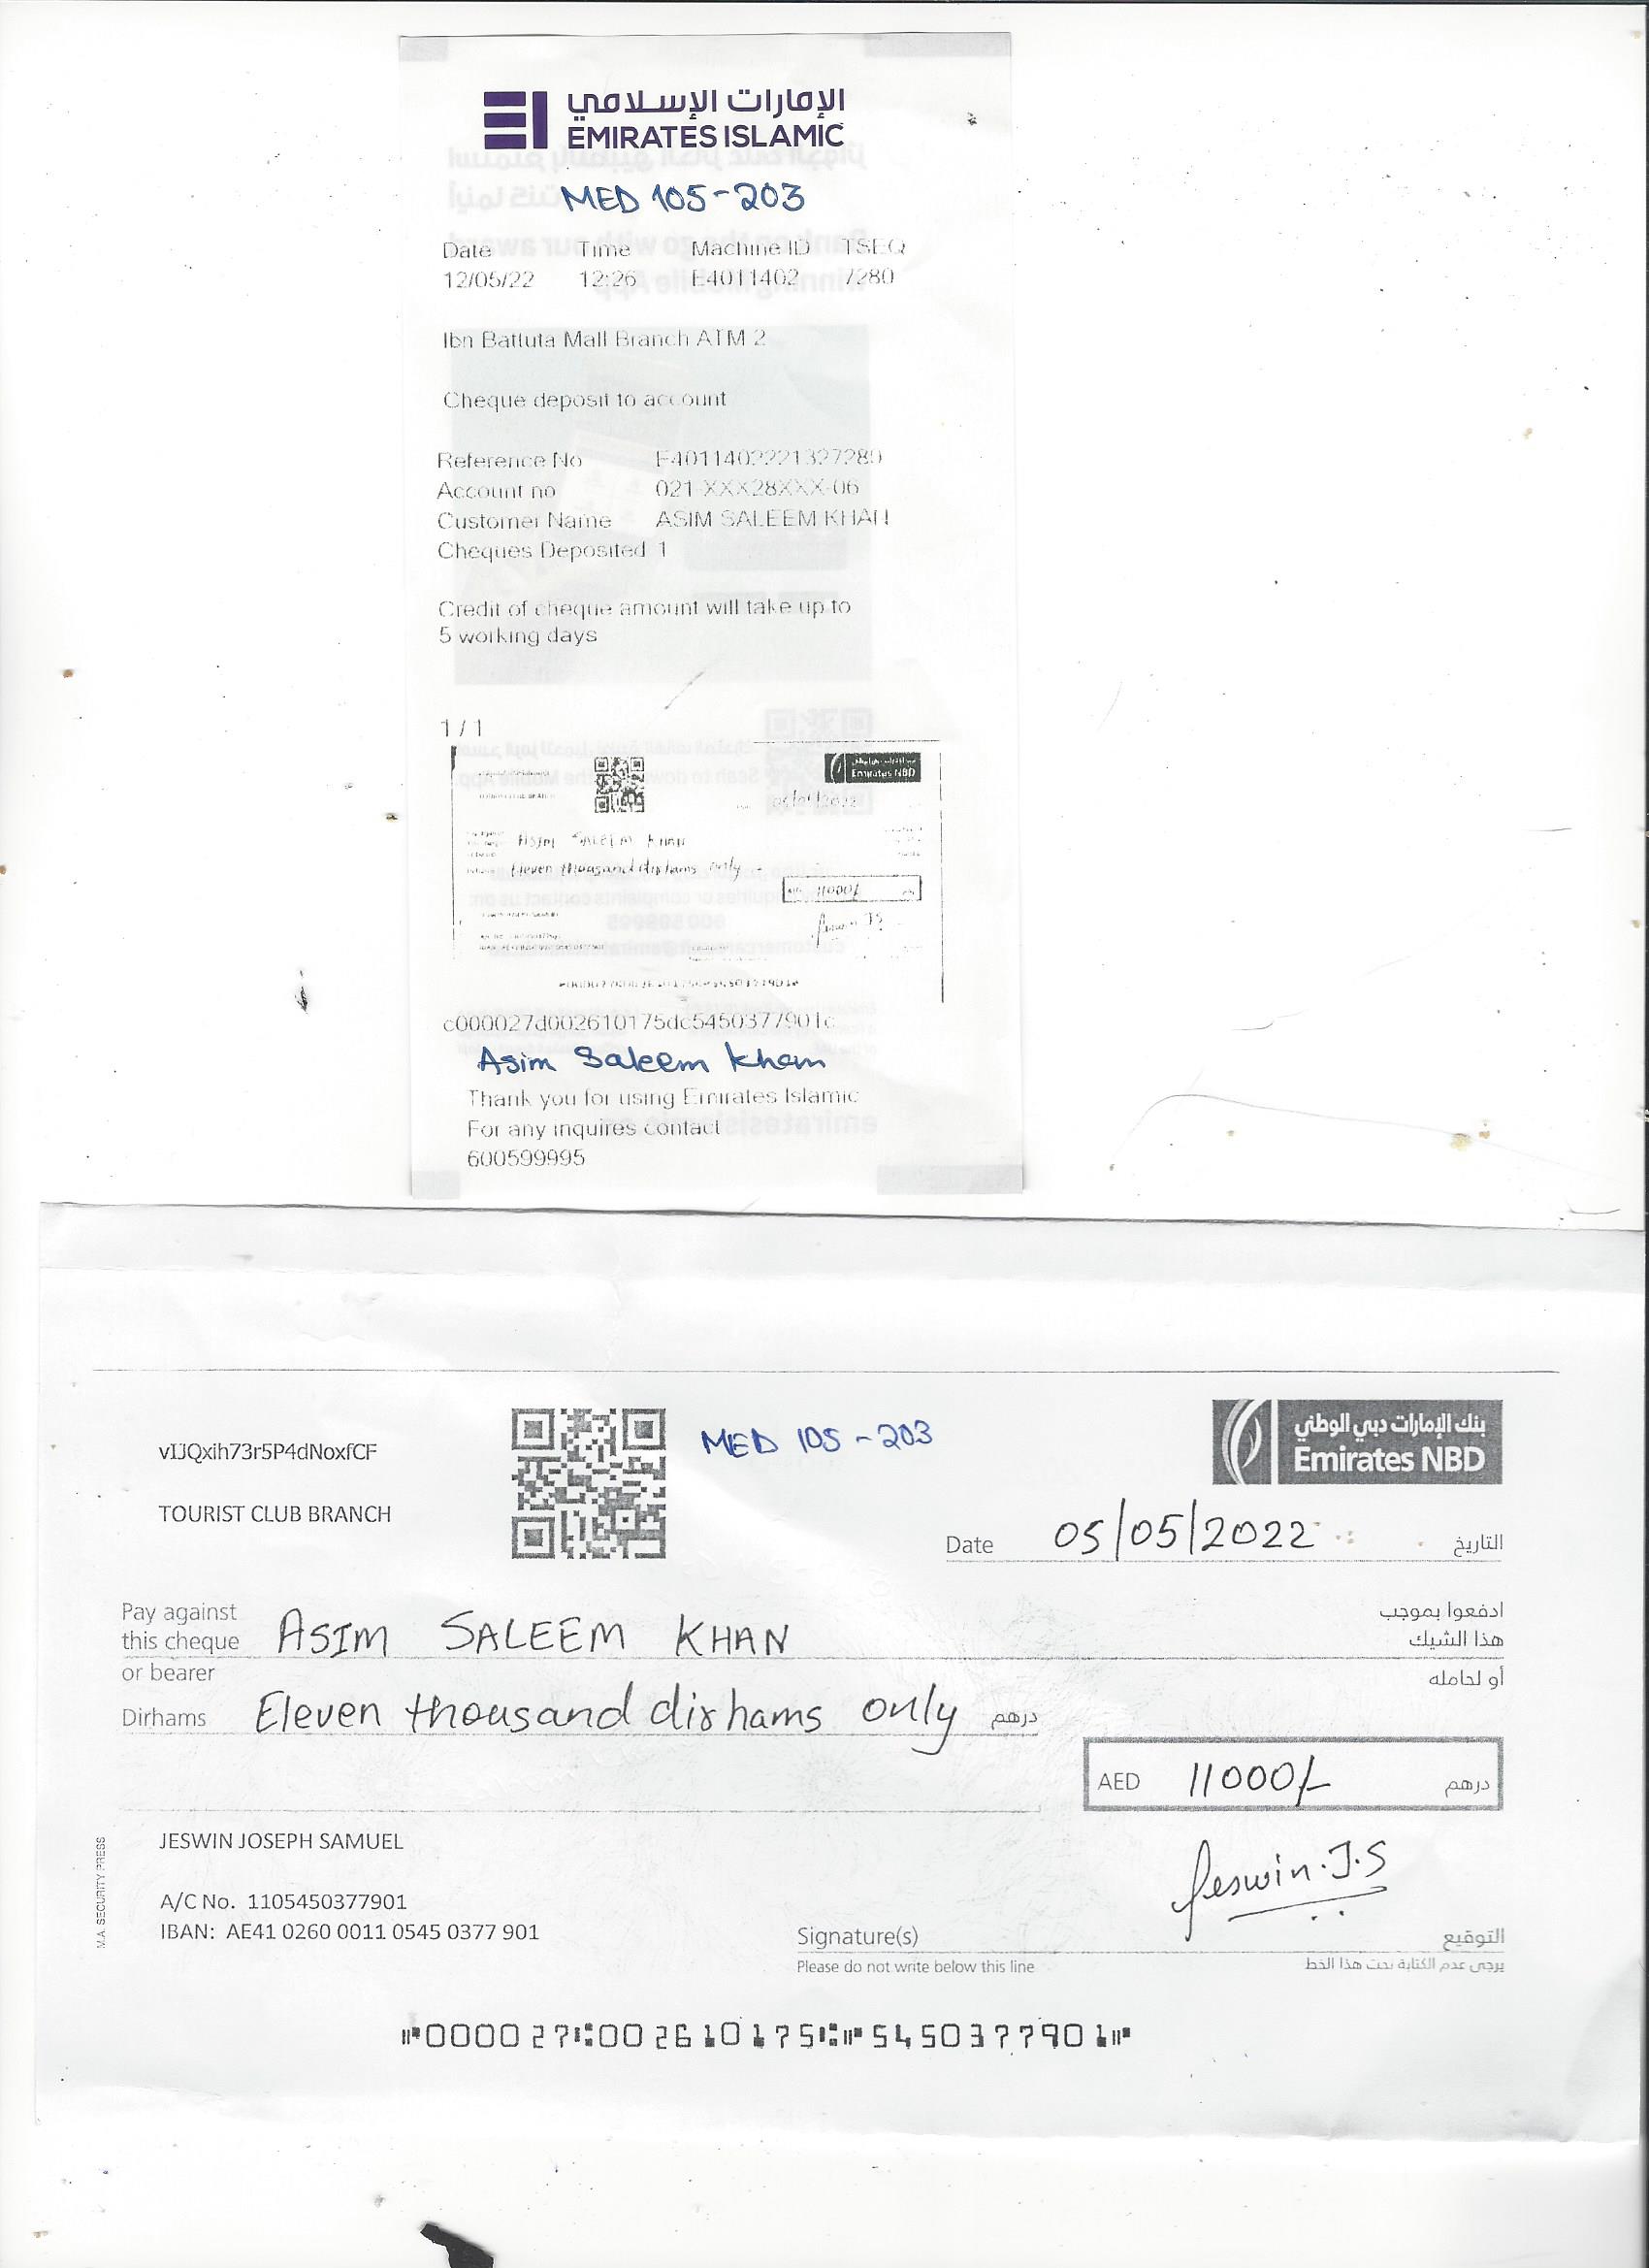 الإمارات الإسلامي
EMIRATES ISLAMIC
MED 105-203
Date Time Machine ID TSEQ
12/05/22 12:26 E4011402 7280
Ibn Battuta Mall Branch ATM 2
Cheque deposit to account
Reference No E401140222132728
Account no 021-XXX28XXX-06
Customer Name ASIM SALEEM KHAN
Cheques Deposited 1
Credit of cheque amount will take up to
5 working days
1 / 1
Emirates NBD
Asim Saleem Khan
Eleven thousand dirhams only
11000/-
c000027d002610175dc5450377901c
Asim Saleem Khan
Thank you for using Emirates Islamic
For any inquires contact
600599995
vIJQxih73r5P4dNoxfCF
MED 105-203
بنك الإمارات دبي الوطني
Emirates NBD
TOURIST CLUB BRANCH
Date 05/05/2022 التاريخ
Pay against
this cheque
or bearer
ASIM SALEEM KHAN
ادفعوا بموجب
هذا الشيك
أو لحامله
Dirhams Eleven thousand dirhams only درهم
AED 11000/- درهم
JESWIN JOSEPH SAMUEL
Jeswin.J.S
A/C No. 1105450377901
IBAN: AE41 0260 0011 0545 0377 901
M.A. SECURITY PRESS
Signature(s) التوقيع
Please do not write below this line يرجى عدم الكتابة تحت هذا الخط
⑈000027⑆002610175⑆⑈5450377901⑈